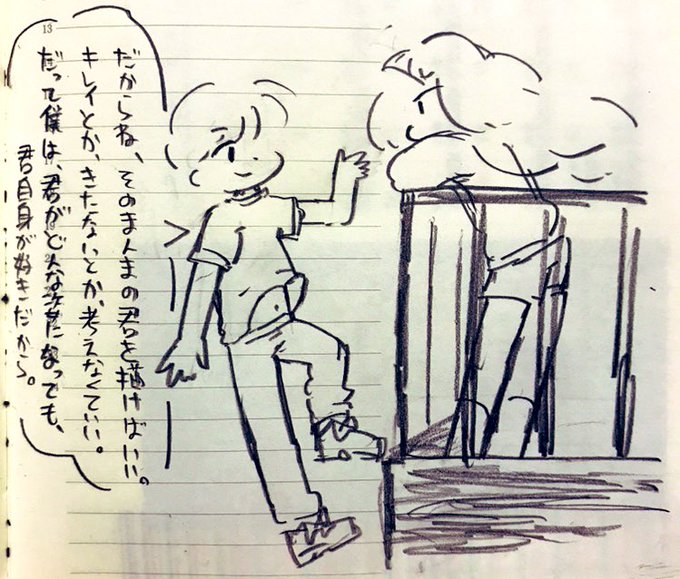 13
だからね、そのまんまの君を描けばいい。
キレイとか、きたないとか、考えなくていい。
だって僕は、君がどんな姿になっても、
君自身が好きだから。